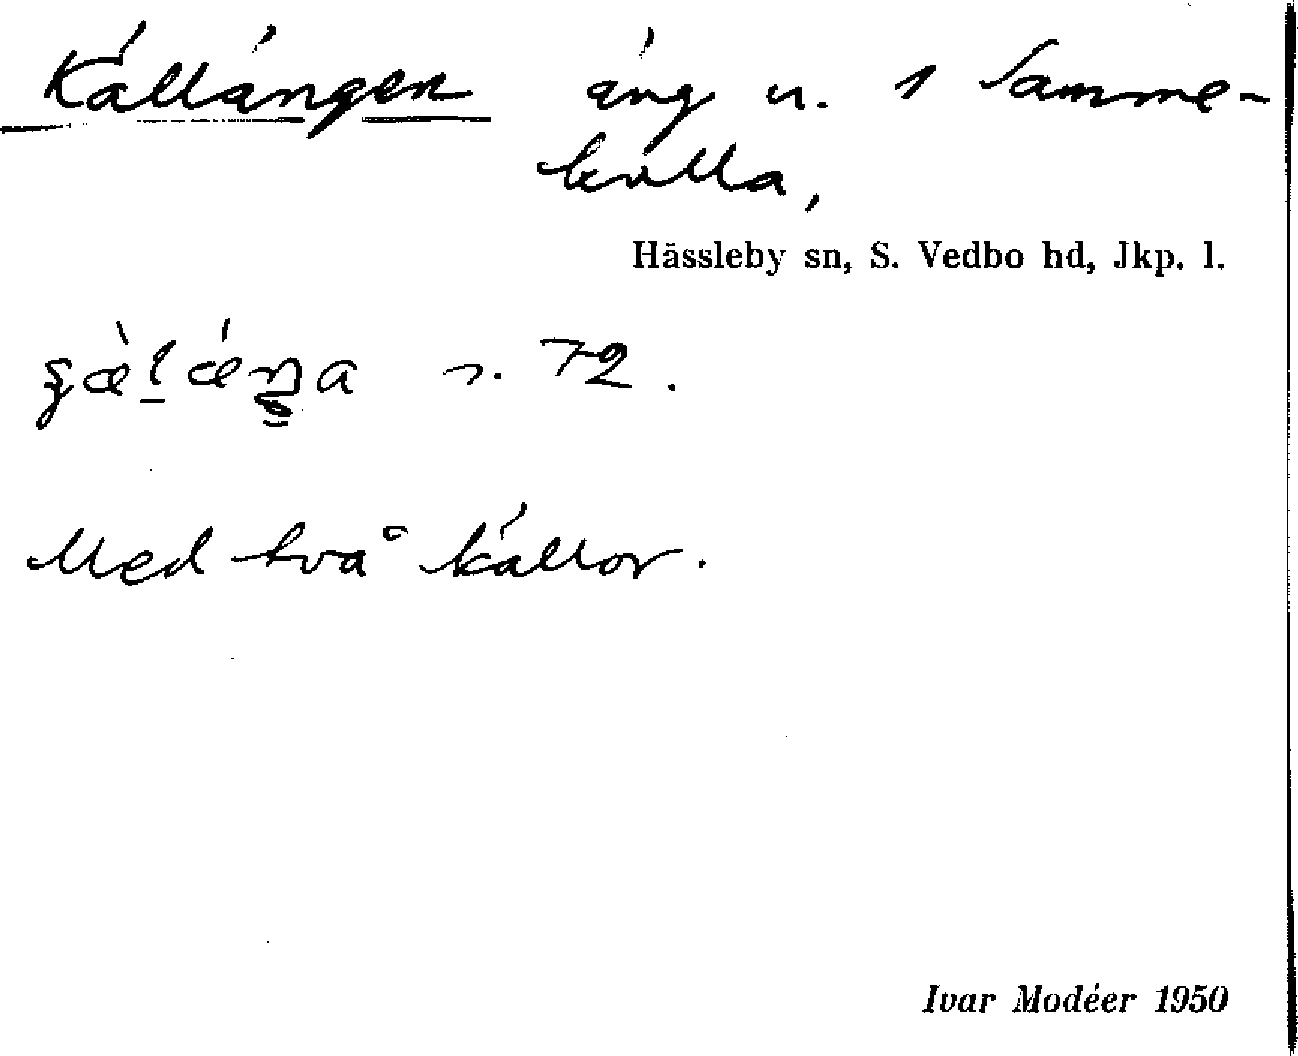 Källängen äng u. 1 Samme-
kulla,
Hässleby sn, S. Vedbo hd, Jkp. l.
72.
Med två källor.
Ivar Modéer 1950